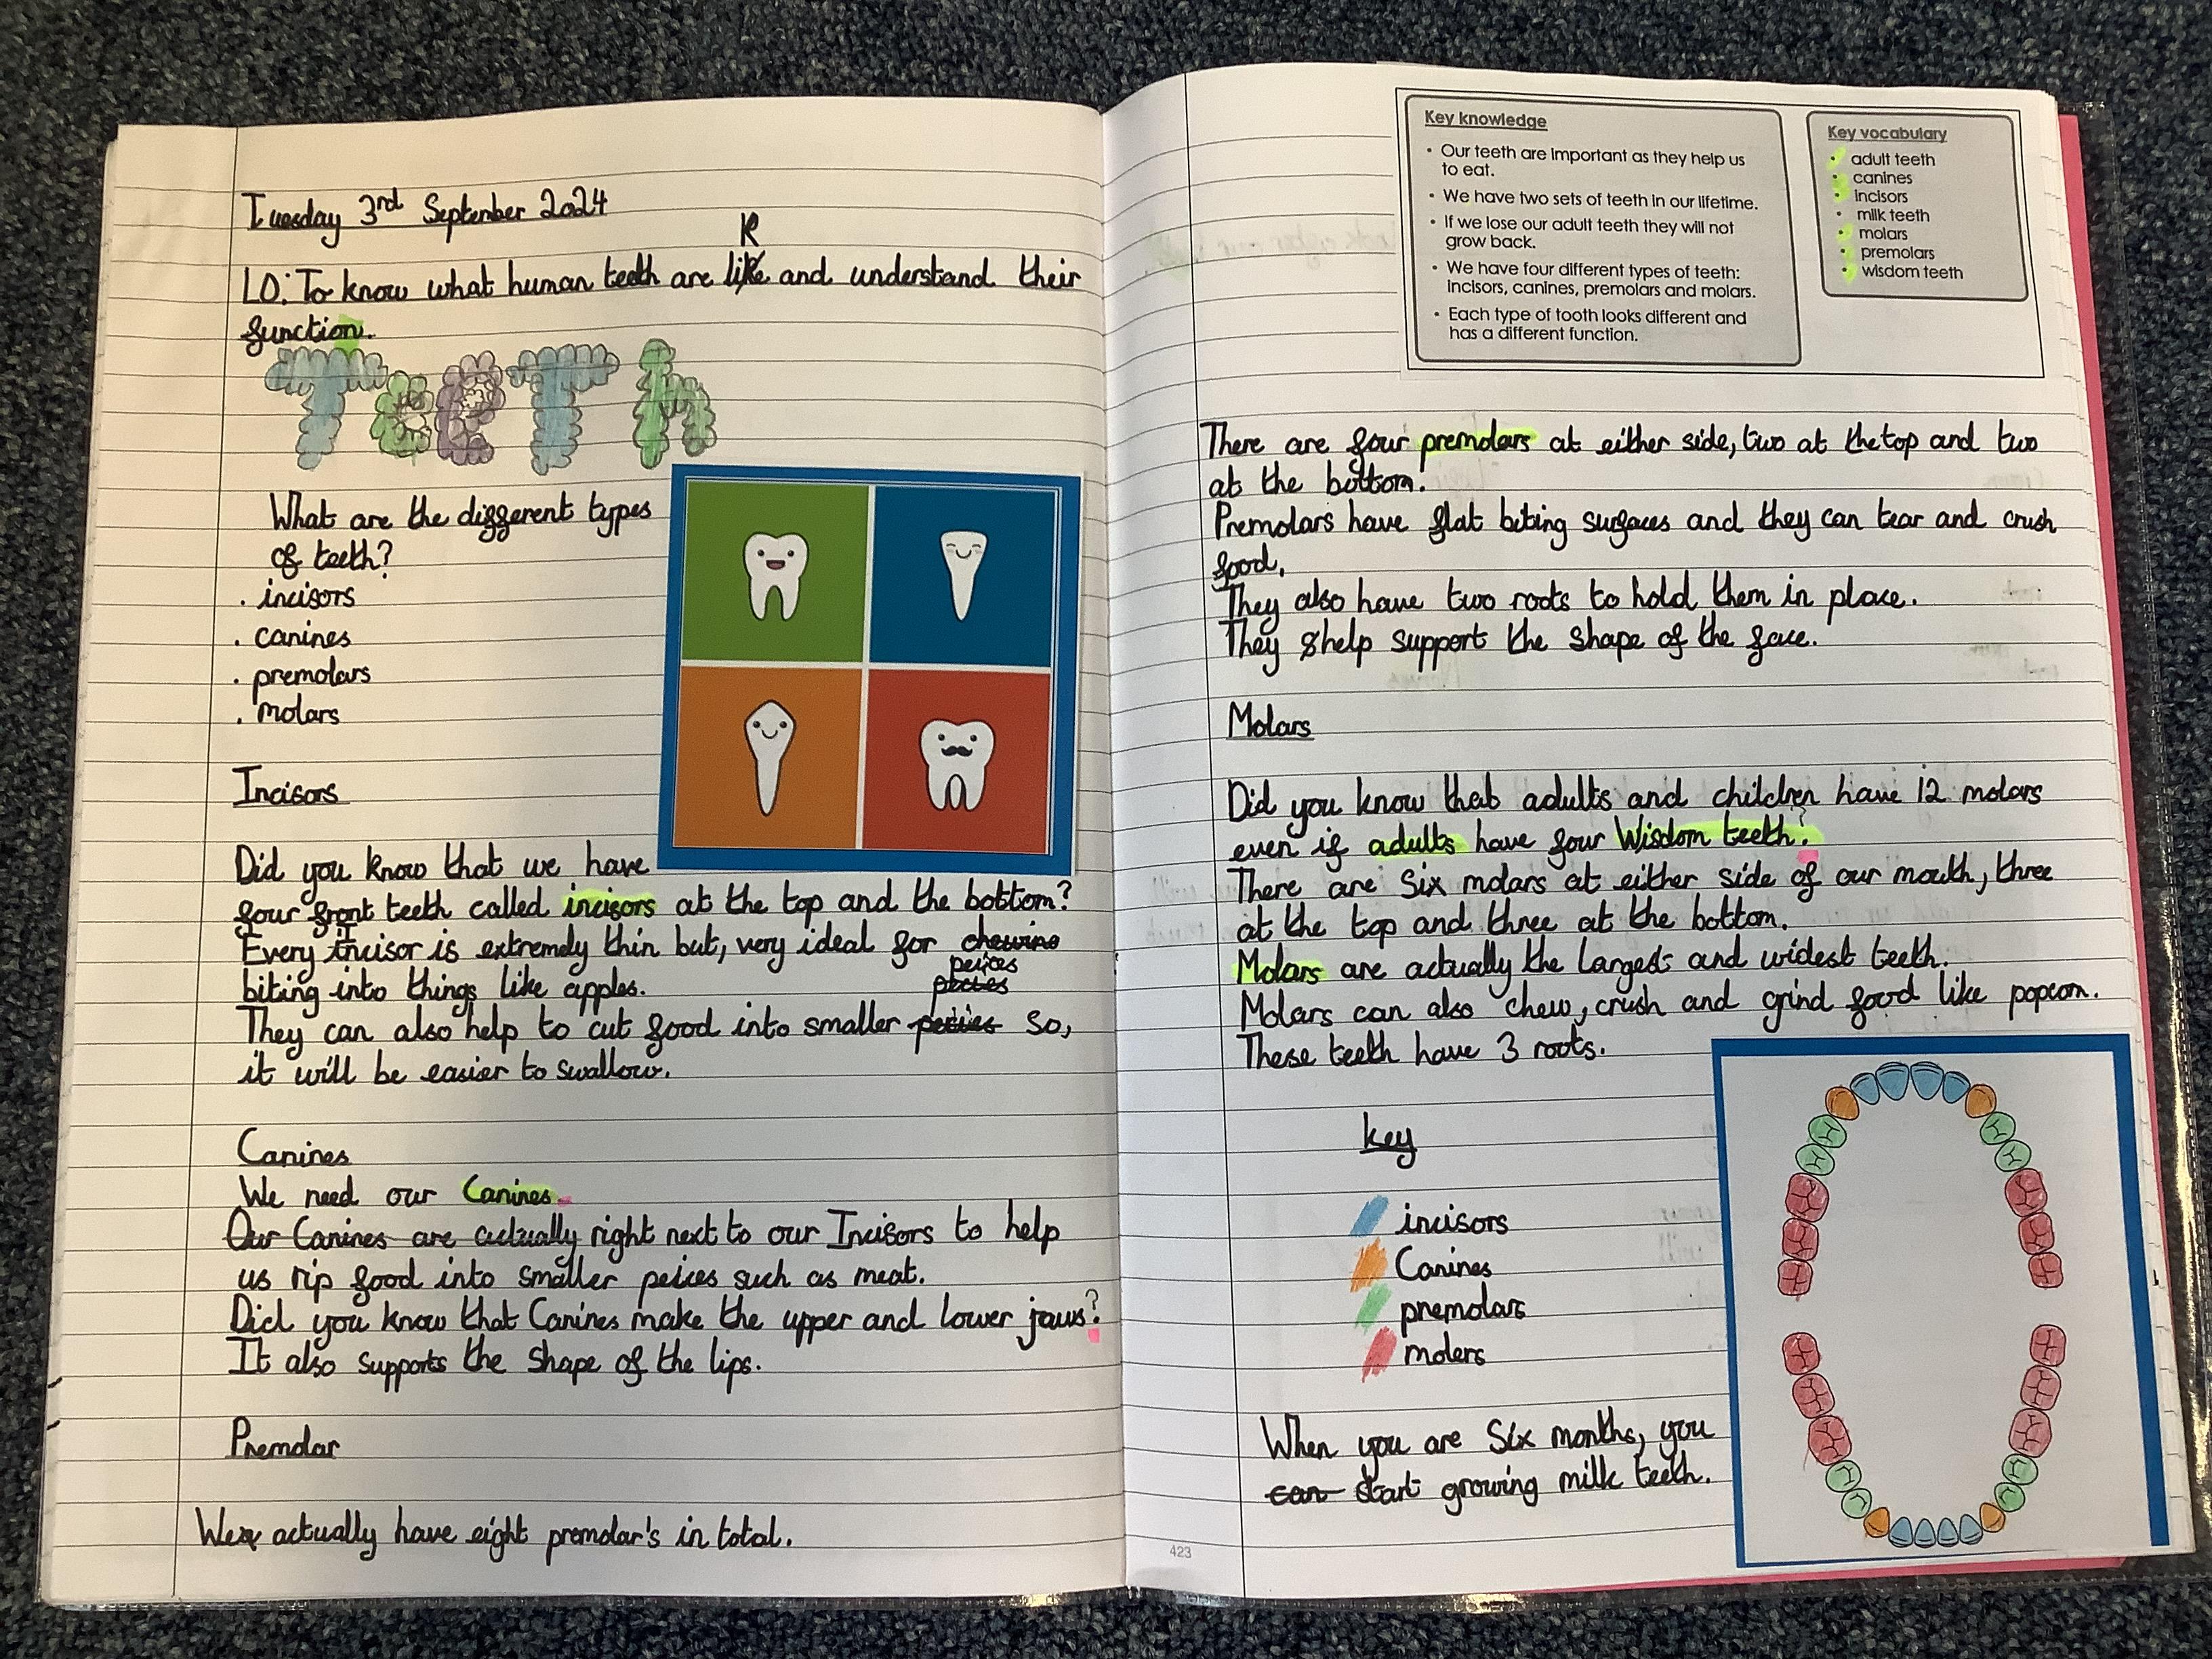 Tuesday 3rd September 2024
K
LO: To know what human teeth are like and understand their
function.
TeeTh
What are the different types
of teeth?
. incisors
. canines
. premolars
. molars
Incisors
Did you know that we have
four front teeth called incisors at the top and the bottom?
Every Incisor is extremely thin but, very ideal for chewing
biting into things like apples.
peices
They can also help to cut food into smaller so,
it will be easier to swallow.
Canines
We need our Canines.
Our Canines are actually right next to our Incisors to help
us rip food into smaller peices such as meat.
Did you know that Canines make the upper and lower jaws?
It also supports the shape of the lips.
Premolar
We actually have eight premolar's in total.
Key knowledge
• Our teeth are important as they help us
to eat.
• We have two sets of teeth in our lifetime.
• If we lose our adult teeth they will not
grow back.
• We have four different types of teeth:
incisors, canines, premolars and molars.
• Each type of tooth looks different and
has a different function.
Key vocabulary
• adult teeth
• canines
• incisors
• milk teeth
• molars
• premolars
• wisdom teeth
There are four premolars at either side, two at the top and two
at the bottom.
Premolars have flat biting surfaces and they can tear and crush
food.
They also have two roots to hold them in place.
They help support the shape of the face.
Molars
Did you know that adults and children have 12 molars
even if adults have four Wisdom teeth?
There are Six molars at either side of our mouth, three
at the top and three at the bottom.
Molars are actually the largest and widest teeth.
Molars can also chew, crush and grind food like popcorn.
These teeth have 3 roots.
key
incisors
Canines
premolars
molers
When you are Six months, you
can start growing milk teeth.
423